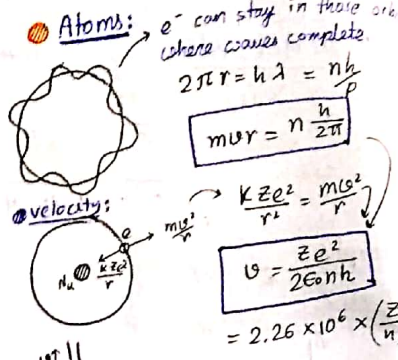 Atoms: e⁻ can stay in those
where waves complete.
2πr = hλ = nh/p
mvr = n h/2π
velocity:
e
mv²/r
kZe²/r
Nu
kZe²/r² = mv²/r
v = Ze²/2ε₀nh
= 2.26 × 10⁶ × (Z/n